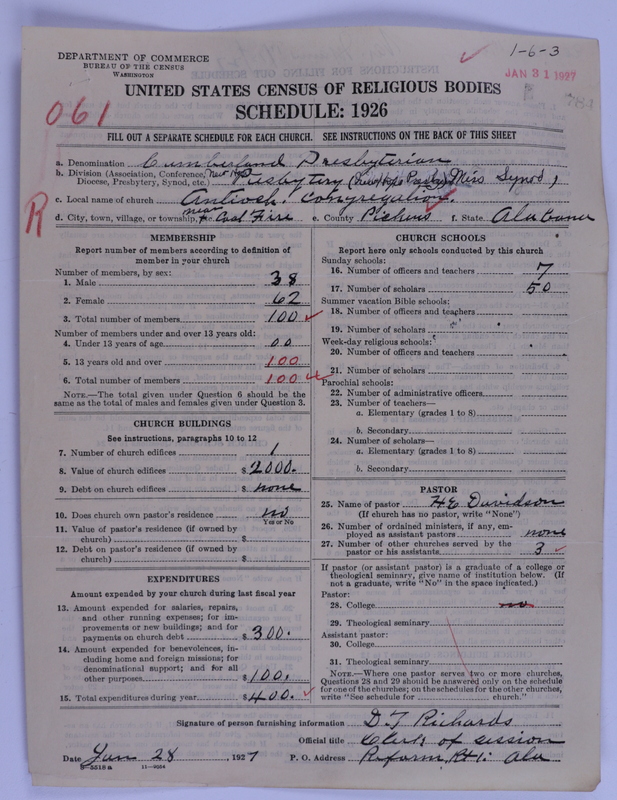 DEPARTMENT OF COMMERCE
BUREAU OF THE CENSUS
WASHINGTON
1-6-3
JAN 31 1927
UNITED STATES CENSUS OF RELIGIOUS BODIES
SCHEDULE: 1926
061
FILL OUT A SEPARATE SCHEDULE FOR EACH CHURCH. SEE INSTRUCTIONS ON THE BACK OF THIS SHEET
a. Denomination Cumberland Presbyterian
b. Division (Association, Conference, Diocese, Presbytery, Synod, etc.) New Hope Presbytery (New Hope Presby Miss Synod)
c. Local name of church Antioch Congregation.
R
d. City, town, village, or township, etc. near Coal Fire e. County Pickens f. State Alabama
MEMBERSHIP
Report number of members according to definition of
member in your church
Number of members, by sex:
1. Male 38
2. Female 62
3. Total number of members 100
Number of members under and over 13 years old:
4. Under 13 years of age 00
5. 13 years old and over 100
6. Total number of members 100
NOTE.—The total given under Question 6 should be
same as the total of males and females given under Question 3.
CHURCH BUILDINGS
See instructions, paragraphs 10 to 12
7. Number of church edifices 1
8. Value of church edifices $2000.
9. Debt on church edifices $ none
10. Does church own pastor's residence no
Yes or No
11. Value of pastor's residence (if owned by
church) $
12. Debt on pastor's residence (if owned by
church) $
EXPENDITURES
Amount expended by your church during last fiscal year
13. Amount expended for salaries, repairs,
and other running expenses; for im-
provements or new buildings; and for
payments on church debt $300.
14. Amount expended for benevolences, in-
cluding home and foreign missions; for
denominational support; and for all
other purposes $100.
15. Total expenditures during year $400.
CHURCH SCHOOLS
Report here only schools conducted by this church
Sunday schools:
16. Number of officers and teachers 7
17. Number of scholars 50
Summer vacation Bible schools:
18. Number of officers and teachers
19. Number of scholars
Week-day religious schools:
20. Number of officers and teachers
21. Number of scholars
Parochial schools:
22. Number of administrative officers
23. Number of teachers—
a. Elementary (grades 1 to 8)
b. Secondary
24. Number of scholars—
a. Elementary (grades 1 to 8)
b. Secondary
PASTOR
25. Name of pastor H E Davidson
(If church has no pastor, write "None")
26. Number of ordained ministers, if any, em-
ployed as assistant pastors none
27. Number of other churches served by the
pastor or his assistants 3
If pastor (or assistant pastor) is a graduate of a college or
theological seminary, give name of institution below. (If
not a graduate, write "No" in the space indicated.)
Pastor:
28. College no
29. Theological seminary
Assistant pastor:
30. College
31. Theological seminary
NOTE.—Where one pastor serves two or more churches,
Questions 28 and 29 should be answered only on the schedule
for one of the churches; on the schedules for the other churches,
write "See schedule for church."
Signature of person furnishing information D. T. Richards
Official title Clerk of session
Date Jan 28, 1927 P. O. Address Reform, Rt 1. Ala
8—5518 a 11—9584